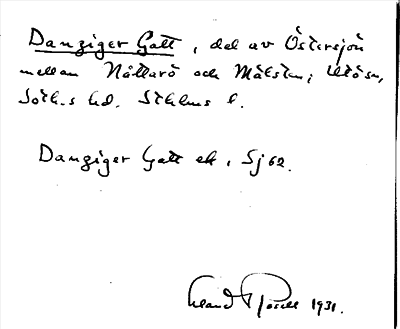 Danziger Gatt, del av Östersjön
mellan Nåttarö och Mälsten; Utö sn,
Soth.s hd. Sthlms l.
Danziger Gatt ek, Sj 62.
Erland Rosell 1931.